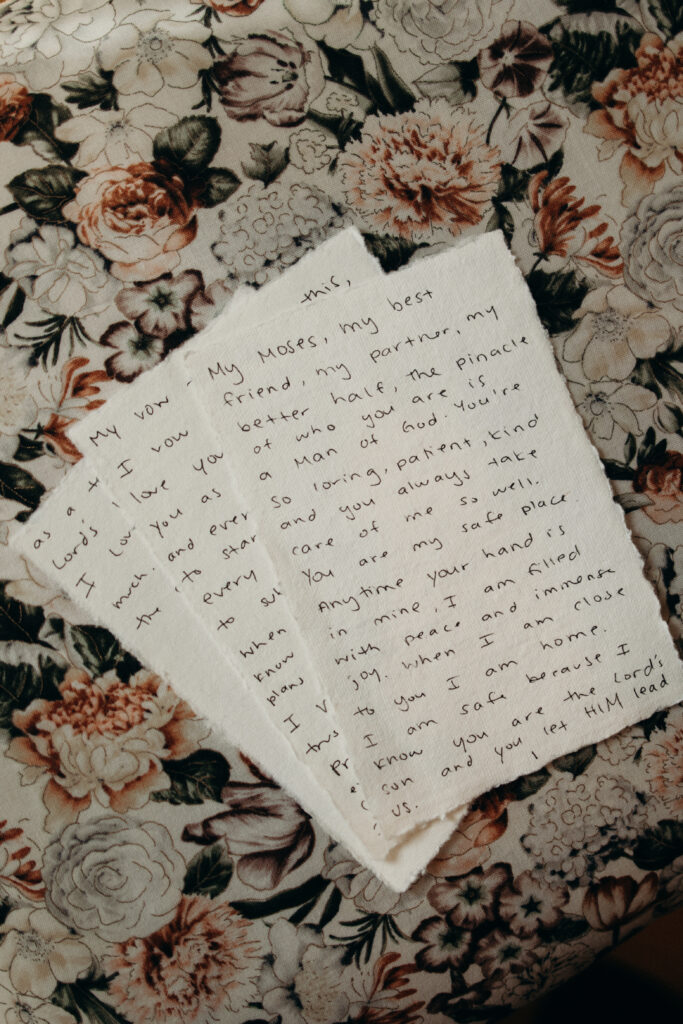 My Moses, my best
friend, my partner, my
better half, the pinacle
of who you are is
a Man of God. You're
so loving, patient, kind
and you always take
care of me so well.
You are my safe place.
Anytime your hand is
in mine, I am filled
with peace and immense
joy. When I am close
to you I am home.
I am safe because I
know you are the Lord's
son and you let HIM lead
us.
My vow this,
I vow
love you
you as
and ever
to star
every
to
when
know
plans
I
as a
Lord's
I lov
much.
the